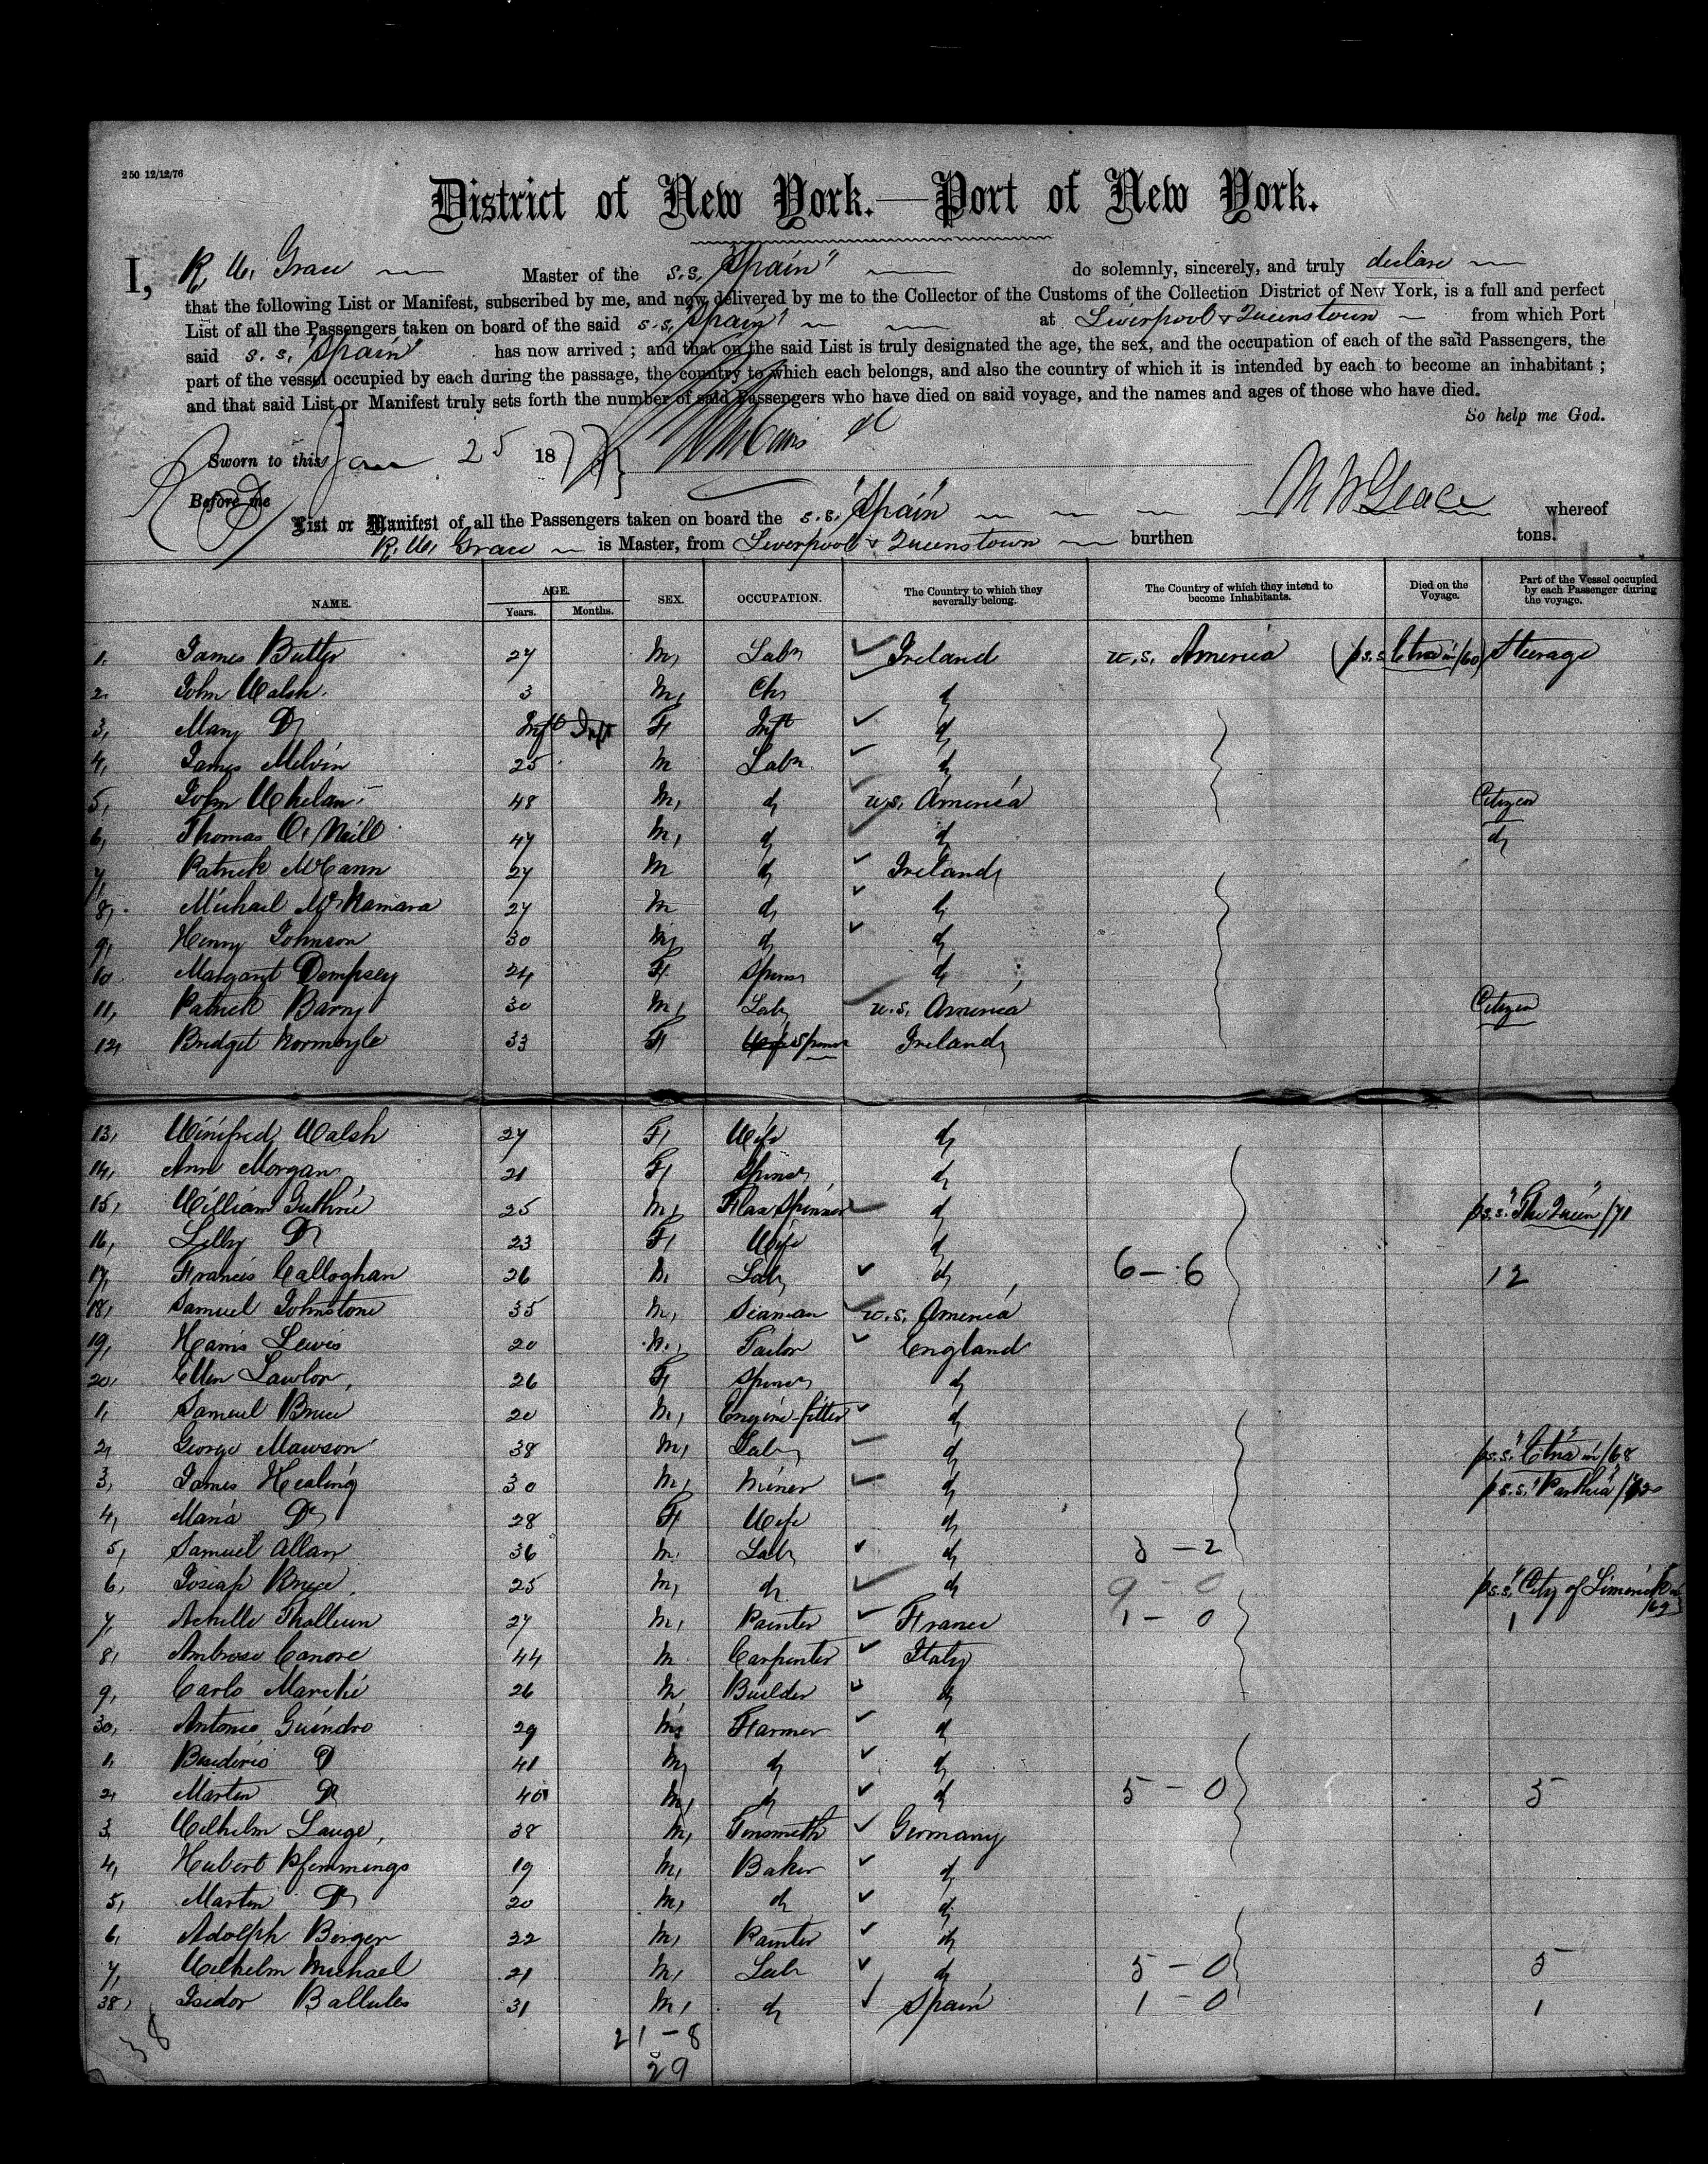 250 12/12/76
District of New York.—Port of New York.
I, R. W. Grace Master of the s.s. "Spain" do solemnly, sincerely, and truly declare
that the following List or Manifest, subscribed by me, and now delivered by me to the Collector of the Customs of the Collection District of New York, is a full and perfect
List of all the Passengers taken on board of the said s.s. "Spain" at Liverpool & Queenstown from which Port
said s.s. "Spain" has now arrived ; and that on the said List is truly designated the age, the sex, and the occupation of each of the said Passengers, the
part of the vessel occupied by each during the passage, the country to which each belongs, and also the country of which it is intended by each to become an inhabitant ;
and that said List or Manifest truly sets forth the number of said Passengers who have died on said voyage, and the names and ages of those who have died.
So help me God.
Sworn to this Jan 25 1877
Before me
List or Manifest of all the Passengers taken on board the s.s. "Spain" whereof
R. W. Grace is Master, from Liverpool & Queenstown burthen tons.
NAME. AGE. Years. Months. SEX. OCCUPATION. The Country to which they severally belong. The Country of which they intend to become Inhabitants. Died on the Voyage. Part of the Vessel occupied by each Passenger during the voyage.
1. James Butler 27 M, Labr Ireland U.S. America (p s.s. Etna in /60) Steerage
2. John Walsh. 3 M, Ch. do
3, Mary Do Inft Inft F, Inft do
4, James Melvin 25 M Labr do
5, John Whelan 48 M, do U.S. America Citizen
6, Thomas O'Neill 47 M, do do do
7, Patrick McCann 27 M do Ireland
8, Michael McNamara 27 M do do
9, Henry Johnson 30 M, do do
10 Margaret Dempsey 24 F. Spinr do
11, Patrick Barry 30 M, Labr U.S. America Citizen
12, Bridget Normoyle 33 F, Wife Spinor Ireland
13, Winifred Walsh 27 F, Wife do
14, Ann Morgan 21 F, Spinor do
15, William Guthrie 25 M, Flax Spinner do p s.s. "The Queen" /71
16, Lilly Do 23 F, Wife do
17, Francis Calloghan 26 M. Labr do 6 - 6 12
18, Samuel Johnstone 35 M, Seaman U.S. America
19, Harris Lewis 20 M, Tailor England
20, Ellen Lawlor, 26 F, Spinor do
1, Samuel Bruce 20 M, Engine-fitter do
2, George Mawson 38 M, Labr do p s.s. "Etna" in /68
3, James Healing 30 M, Miner do p s.s. "Parthia" /72
4, Maria Do 28 F, Wife do
5, Samuel Allan 36 M. Labr do 3 - 2
6, Josiah Bruce, 25 M, do do 9 - 0 p s.s. "City of Limerick" /69
7, Achille Thalleun 27 M, Painter France 1 - 0 1
8, Ambrose Canore 44 M Carpenter Italy
9, Carlo Marchi 26 M, Builder do
30, Antonio Guindro 29 M, Farmer do
1, Do 41 M, do do
2, Martin Do 40 M, do do 5 - 0 5
3, Wilhelm Lange, 38 M, Tinsmith Germany
4, Hubert Pfemmings 19 M, Baker do
5, Martin Do 20 M, do do
6, Adolph Berger 22 M, Painter do
7, Wilhelm Michael 21 M, Labr do 5 - 0 5
38, Isidor Ballules 31 M, do Spain 1 - 0 1
38 21 - 8
29